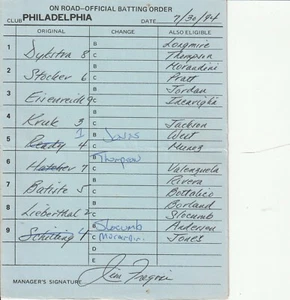 ON ROAD–OFFICIAL BATTING ORDER
CLUB PHILADELPHIA DATE 7/30/94
ORIGINAL CHANGE ALSO ELIGIBLE
1 Dykstra 8 B Longmire
C Thompson
2 Stocker 6 B Morandini
C Pratt
3 Eisenreich 9 B Jordan
C Incaviglia
4 Kruk 3 B Jackson
1 C West
5 Ready 4 B Jones
C Munoz
6 Hatcher 7 B Thompson Valenzuela
C Rivera
7 Batiste 5 B Bottalico
C Borland
8 Lieberthal 2 B Slocumb
C Anderson
9 Schilling B Slocumb Jones
C Morandini
MANAGER'S SIGNATURE Jim Fregosi